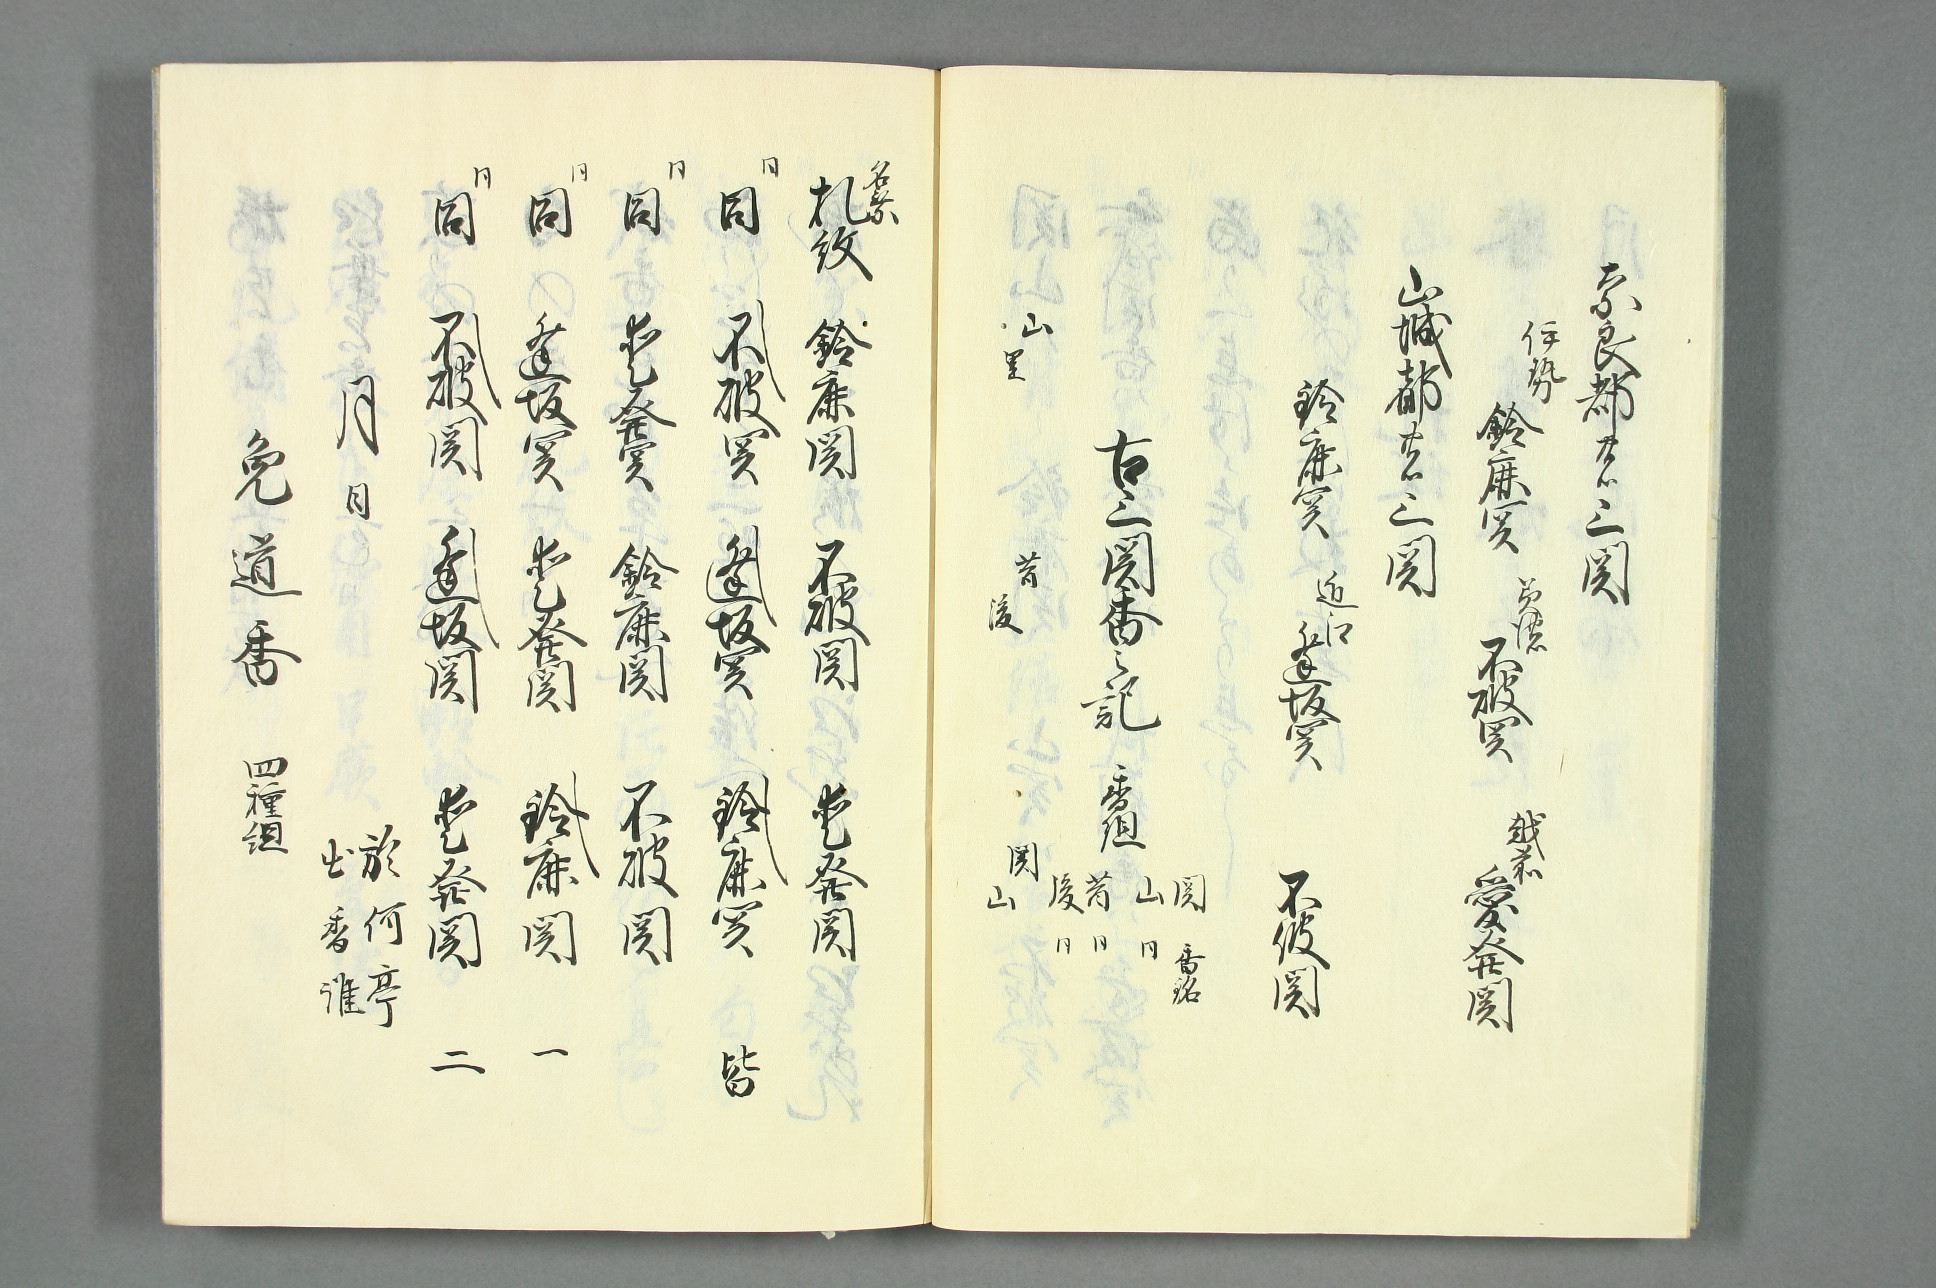 奈良都
三関
伊勢
鈴鹿関
美濃
不破関
越前
愛発関
山城都
三関
鈴鹿関
近江
逢坂関
不破関
古三関香之記
香組
関
香銘
山
同
昔
同
後
同
山
里
昔
後
関
山
名乗
札紋
鈴鹿関
不破関
愛発関
同
同
不破関
逢坂関
鈴鹿関
皆
同
同
愛発関
鈴鹿関
不破関
同
同
逢坂関
愛発関
鈴鹿関
一
同
同
不破関
逢坂関
愛発関
二
月日
於何亭
出香誰
兔道香
四種組